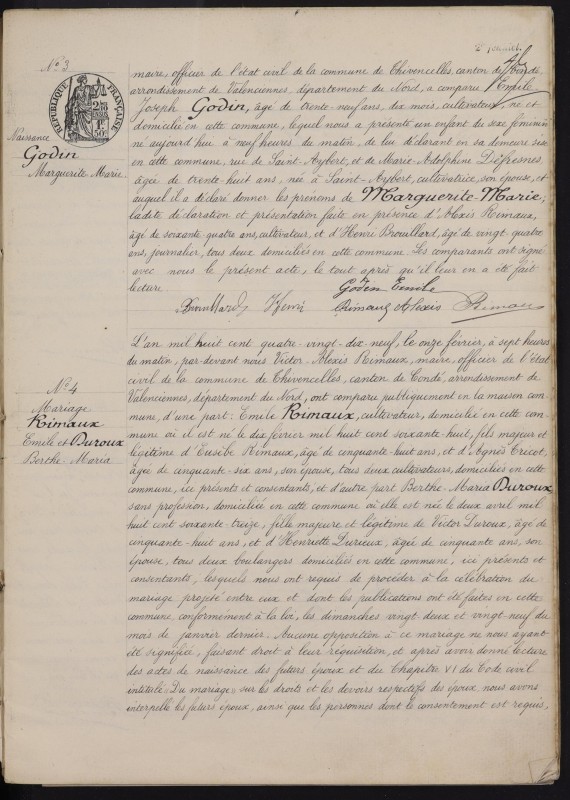 2e feuillet
Nº 3
Naissance
Godin
Marguerite Marie
RÉPUBLIQUE FRANÇAISE
maire, officier de l'état civil de la commune de Thivencelles, canton de Condé,
arrondissement de Valenciennes, département du Nord, a comparu Emile
Joseph Godin, âgé de trente-neuf ans, dix mois, cultivateur, né et
domicilié en cette commune, lequel nous a présenté un enfant du sexe féminin
né aujourd'hui à neuf heures du matin, de lui déclarant en sa demeure sise
en cette commune, rue de Saint-Aybert, et de Marie-Adolphine Défresnes
âgée de trente huit ans, née à Saint-Aybert, cultivatrice, son épouse, et
auquel il a déclaré donner les prénoms de Marguerite-Marie;
ladite déclaration et présentation faite en présence d'Alexis Rimaux,
âgé de soixante-quatre ans, cultivateur, et d'Henri Brouillard, âgé de vingt-quatre
ans, journalier, tous deux domiciliés en cette commune. Les comparants ont signé
avec nous le présent acte, le tout après qu'il leur en a été fait
lecture
Godin Emile
Brouillard Henri Rimaux Alexis Rimaux
Nº 4
Mariage
Rimaux
Emile et Duroux
Berthe-Maria
L'an mil huit cent quatre-vingt-dix-neuf, le onze février, à sept heures
du matin, par-devant nous Victor-Alexis Rimaux, maire, officier de l'état
civil de la commune de Thivencelles, canton de Condé, arrondissement de
Valenciennes, département du Nord, ont comparu publiquement en la maison com-
mune, d'une part: Emile Rimaux, cultivateur, domicilié en cette com-
mune où il est né le dix février mil huit cent soixante-huit, fils majeur et
légitime d'Eusèbe Rimaux, âgé de cinquante-huit ans, et d'Agnès Tricot,
âgée de cinquante-six ans, son épouse, tous deux cultivateurs, domiciliés en cette
commune, ici présents et consentants, et d'autre part Berthe-Maria Duroux
sans profession, domiciliée en cette commune où elle est née le deux avril mil
huit cent soixante-treize, fille majeure et légitime de Victor Duroux, âgé de
cinquante-huit ans et d'Henriette Durieux, âgée de cinquante ans, son
épouse, tous deux boulangers domiciliés en cette commune, ici présents et
consentants, lesquels nous ont requis de procéder à la célébration du
mariage projeté entre eux et dont les publications ont été faites en cette
commune conformément à la loi, les dimanches vingt-deux et vingt-neuf du
mois de janvier dernier. Aucune opposition à ce mariage ne nous ayant
été signifiée, faisant droit à leur réquisition, et après avoir donné lecture
des actes de naissance des futurs époux et du Chapitre VI du Code civil
intitulé "Du mariage" sur les droits et les devoirs respectifs des époux, nous avons
interpellé les futurs époux, ainsi que les personnes dont le consentement est requis,